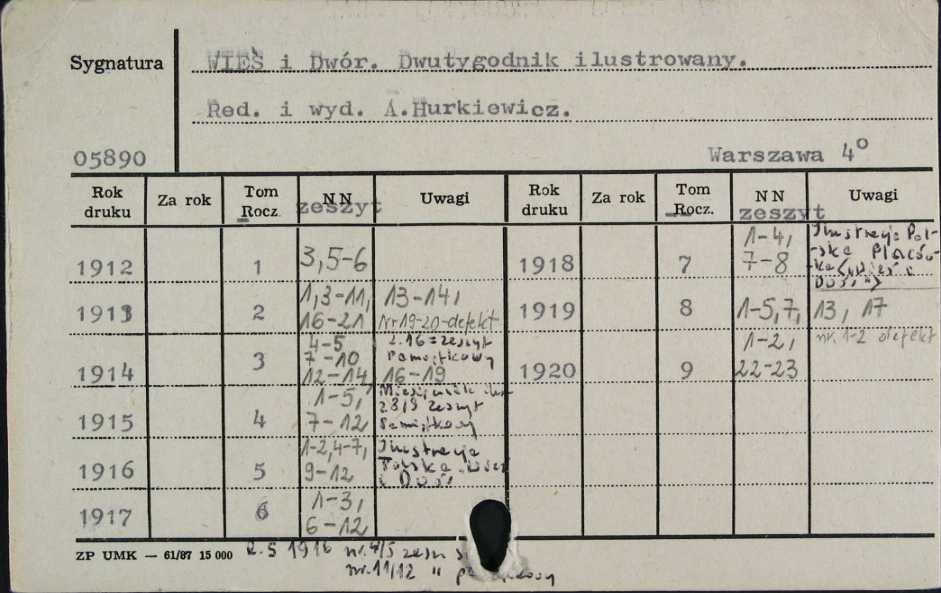 Sygnatura
WIEŚ i Dwór. Dwutygodnik ilustrowany.
Red. i wyd. A.Hurkiewicz.
05890
Warszawa 4°
Rok druku Za rok Tom Rocz. NN zeszyt Uwagi Rok druku Za rok Tom Rocz. NN zeszyt Uwagi
1912 1 3,5-6
1913 2 1,3-11, 13-14,
16-21 Nr 19-20-defekt
1914 3 4-5 z.16=zeszyt
7-10 Pamiątkowy
12-14, 16-19
1915 4 1-5, Miesięcznik
7-12 zeszyt
Pamiątkowy
1916 5 1-2,4-7, Ilustracja
9-12 Polska Wieś
i Dwór
1917 6 1-3,
6-12
1918 7 1-4, Ilustracja Pol-
7-8 -ska Placów-
-ka ("Wieś i
Dwór")
1919 8 1-5,7, 13, 17
1920 9 1-2, nr. 1-2 defekt
22-23
ZP UMK — 61/87 15 000
R.5 1916 nr.4/5 zesz
nr.11/12 "